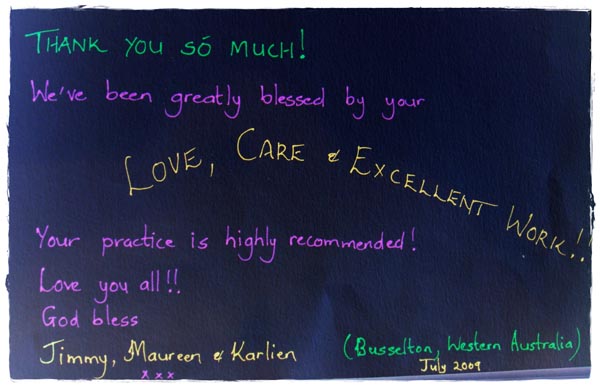 THANK YOU SÓ MUCH!
We've been greatly blessed by your
LOVE, CARE & EXCELLENT WORK!!
Your practice is highly recommended!
Love you all!!
God bless
Jimmy, Maureen & Karlien
x x x
(Busselton, Western Australia)
July 2009